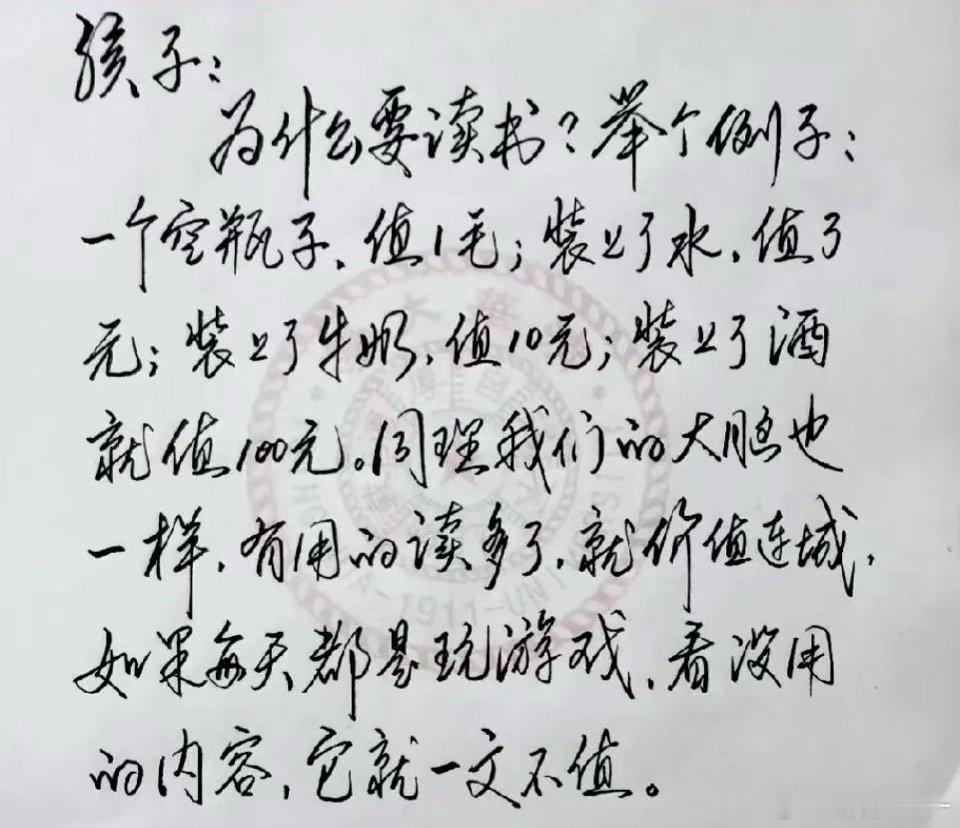 孩子：
为什么要读书？举个例子：
一个空瓶子，值1毛；装上了水，值了
元；装上了牛奶，值10元；装上了酒
就值100元。同理我们的大脑也
一样，有用的读多了，就价值连城，
如果每天都是玩游戏，看没用
的内容，它就一文不值。
大 华
-1911-UNI